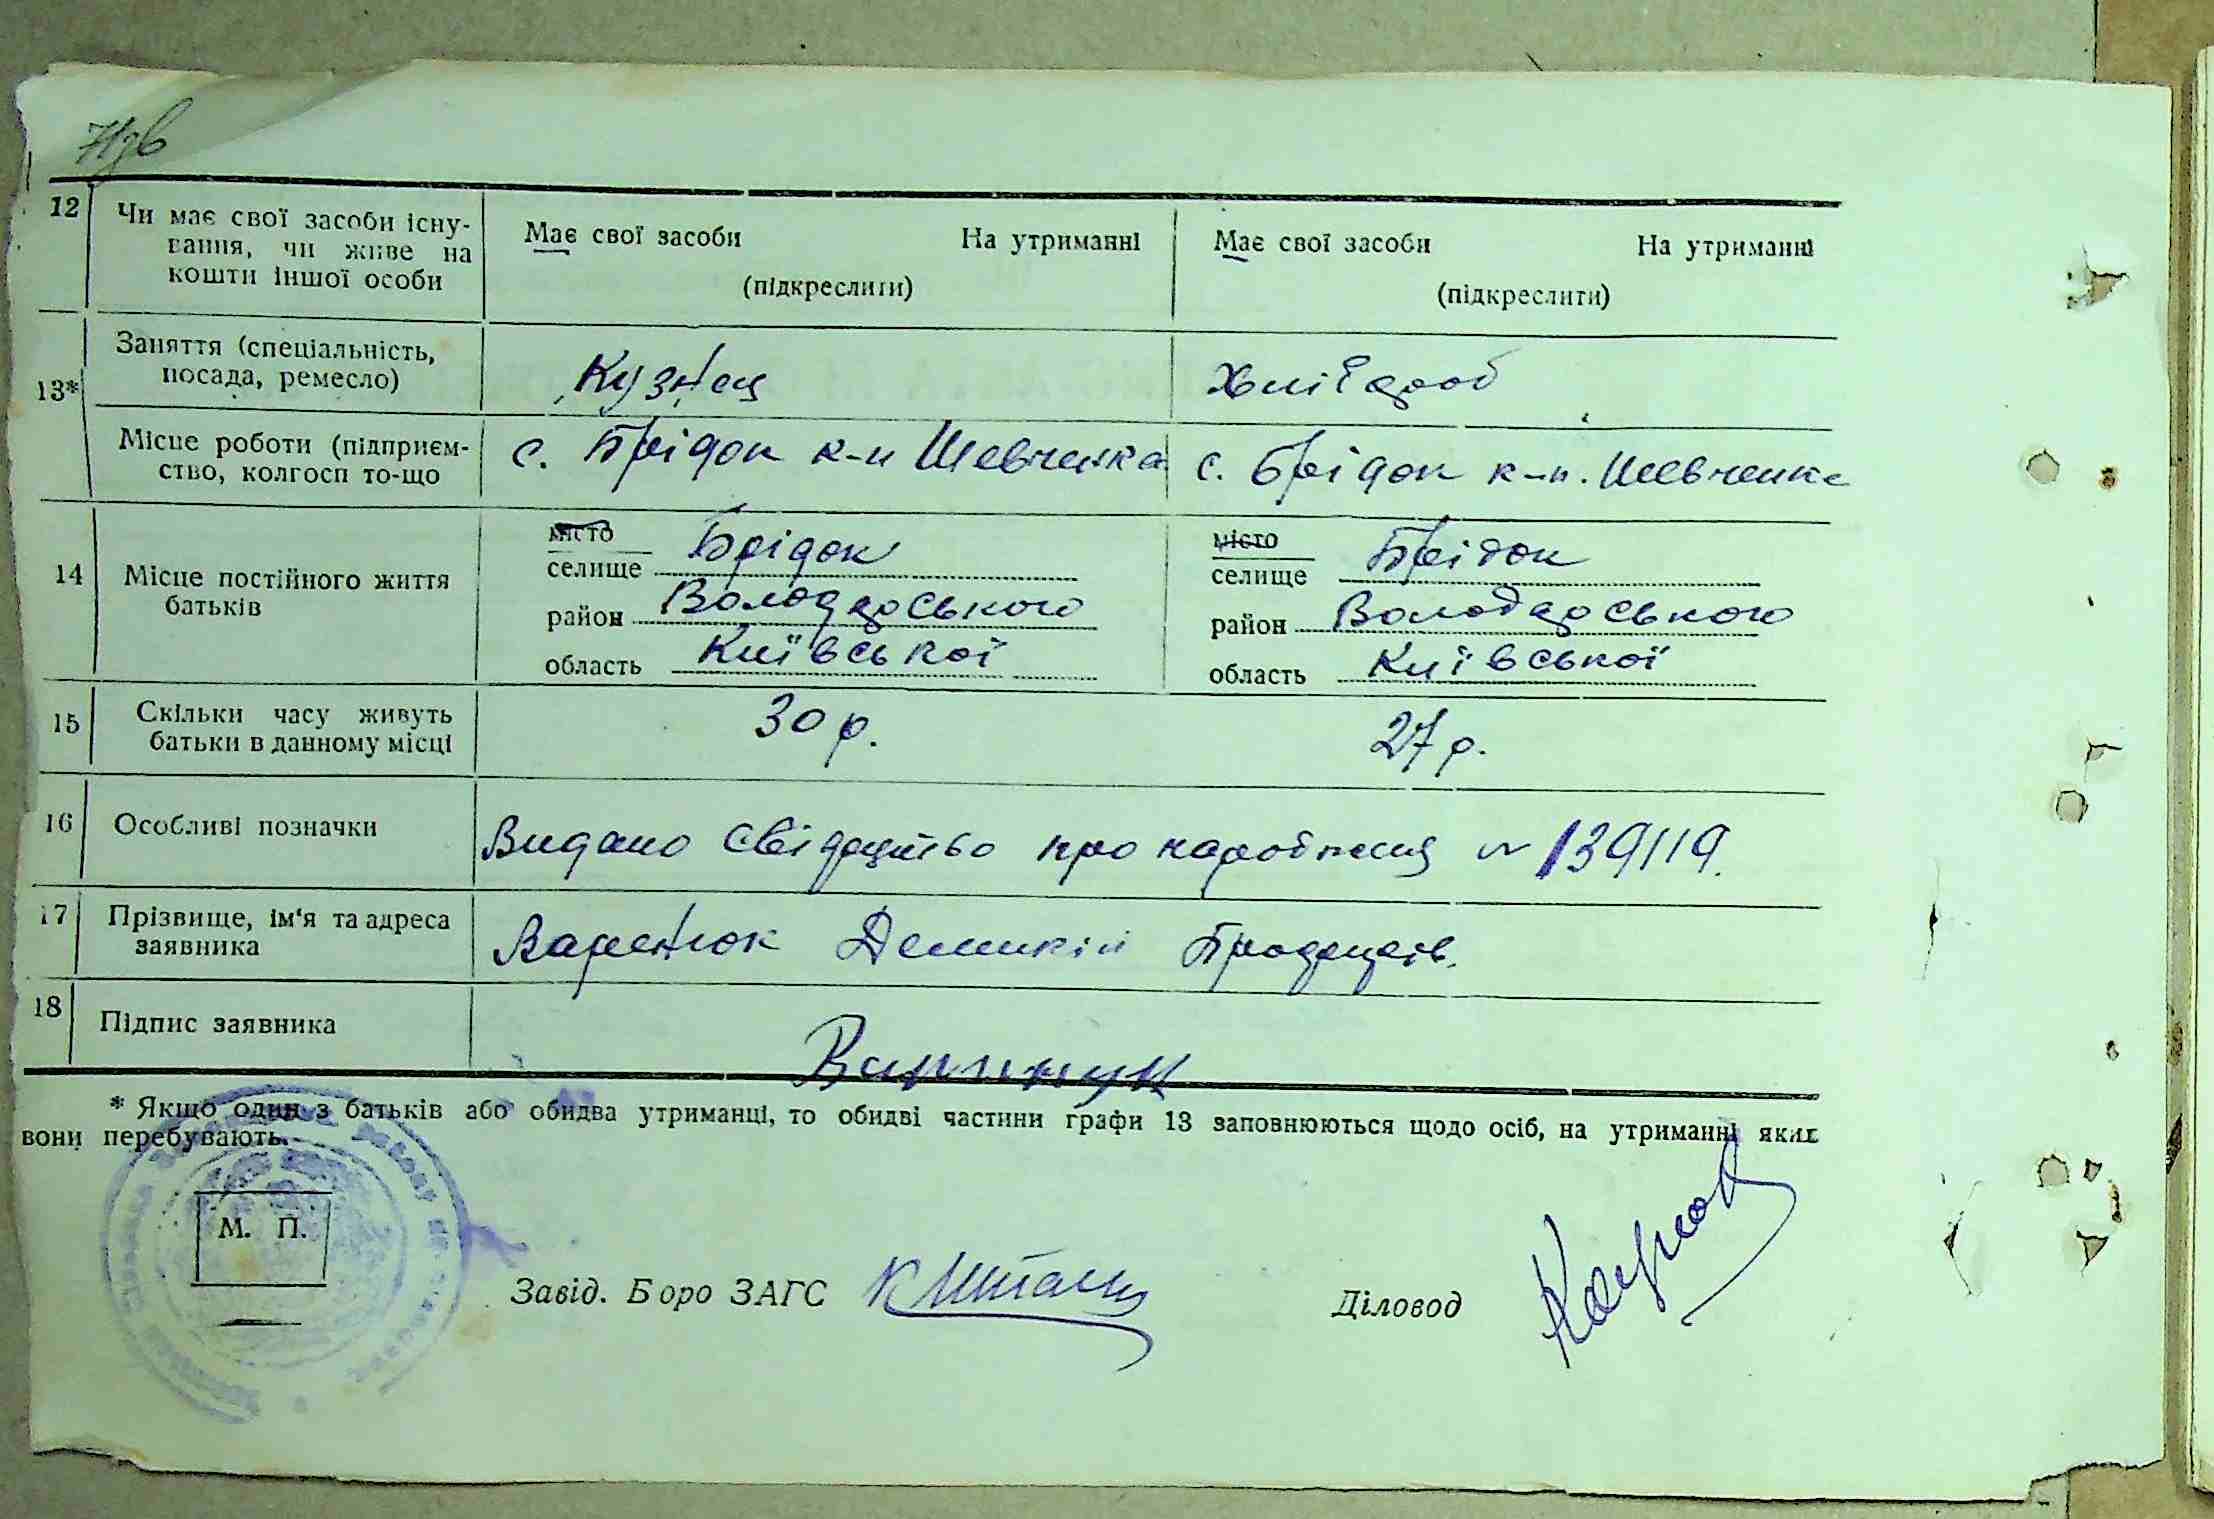 71зв
12 Чи має свої засоби існу-
вання, чи живе на
кошти іншої особи
Має свої засоби На утриманні Має свої засоби На утриманні
(підкреслити) (підкреслити)
13* Заняття (спеціальність,
посада, ремесло) Кузнец Хлібороб
Місце роботи (підприєм-
ство, колгосп то-що с. Брідок к-п Шевченка с. Брідок к-п. Шевченка
14 Місце постійного життя
батьків
місто місто
селище Брідок селище Брідок
район Володарського район Володарського
область Київської область Київської
15 Скільки часу живуть
батьки в данному місці 30 р. 27 р.
16 Особливі позначки Видано свідоцтво про народження № 139119.
17 Прізвище, ім'я та адреса
заявника Варенюк
18 Підпис заявника
* Якщо один з батьків або обидва утриманці, то обидві частини графи 13 заповнюються щодо осіб, на утриманні яких
вони перебувають.
М. П.
Завід. Боро ЗАГС
Діловод